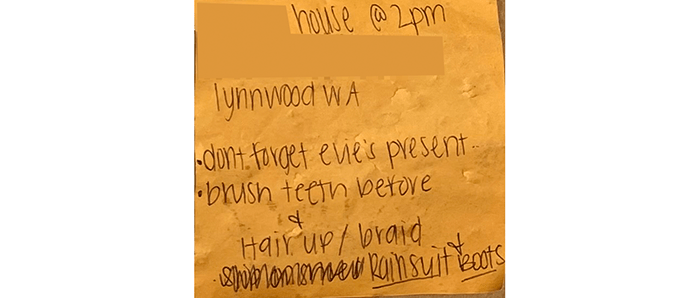 house @ 2pm
lynnwood WA
•dont forget evie's present..
•brush teeth before
&
Hair up/braid
Rainsuit & Boots